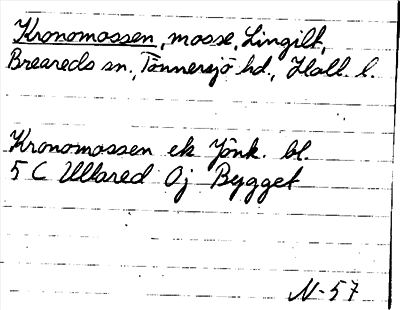 Kronomossen, mosse, Lingilt,
Breareds sn., Tönnersjö hd., Hall. l.
Kronomossen ek Jönk. bl.
5 C Ullared Oj Bygget
N-57